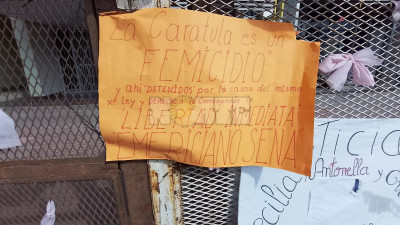 La Caratula es un
FEMICIDIO
y ahi "DETENIDOS" por la causa del mismo
x ley y DERECHOS le corresponde
LIBERTAD INMEDIATA
EMERCIANO SENA
TICIA
Cecilia
Antonella y G